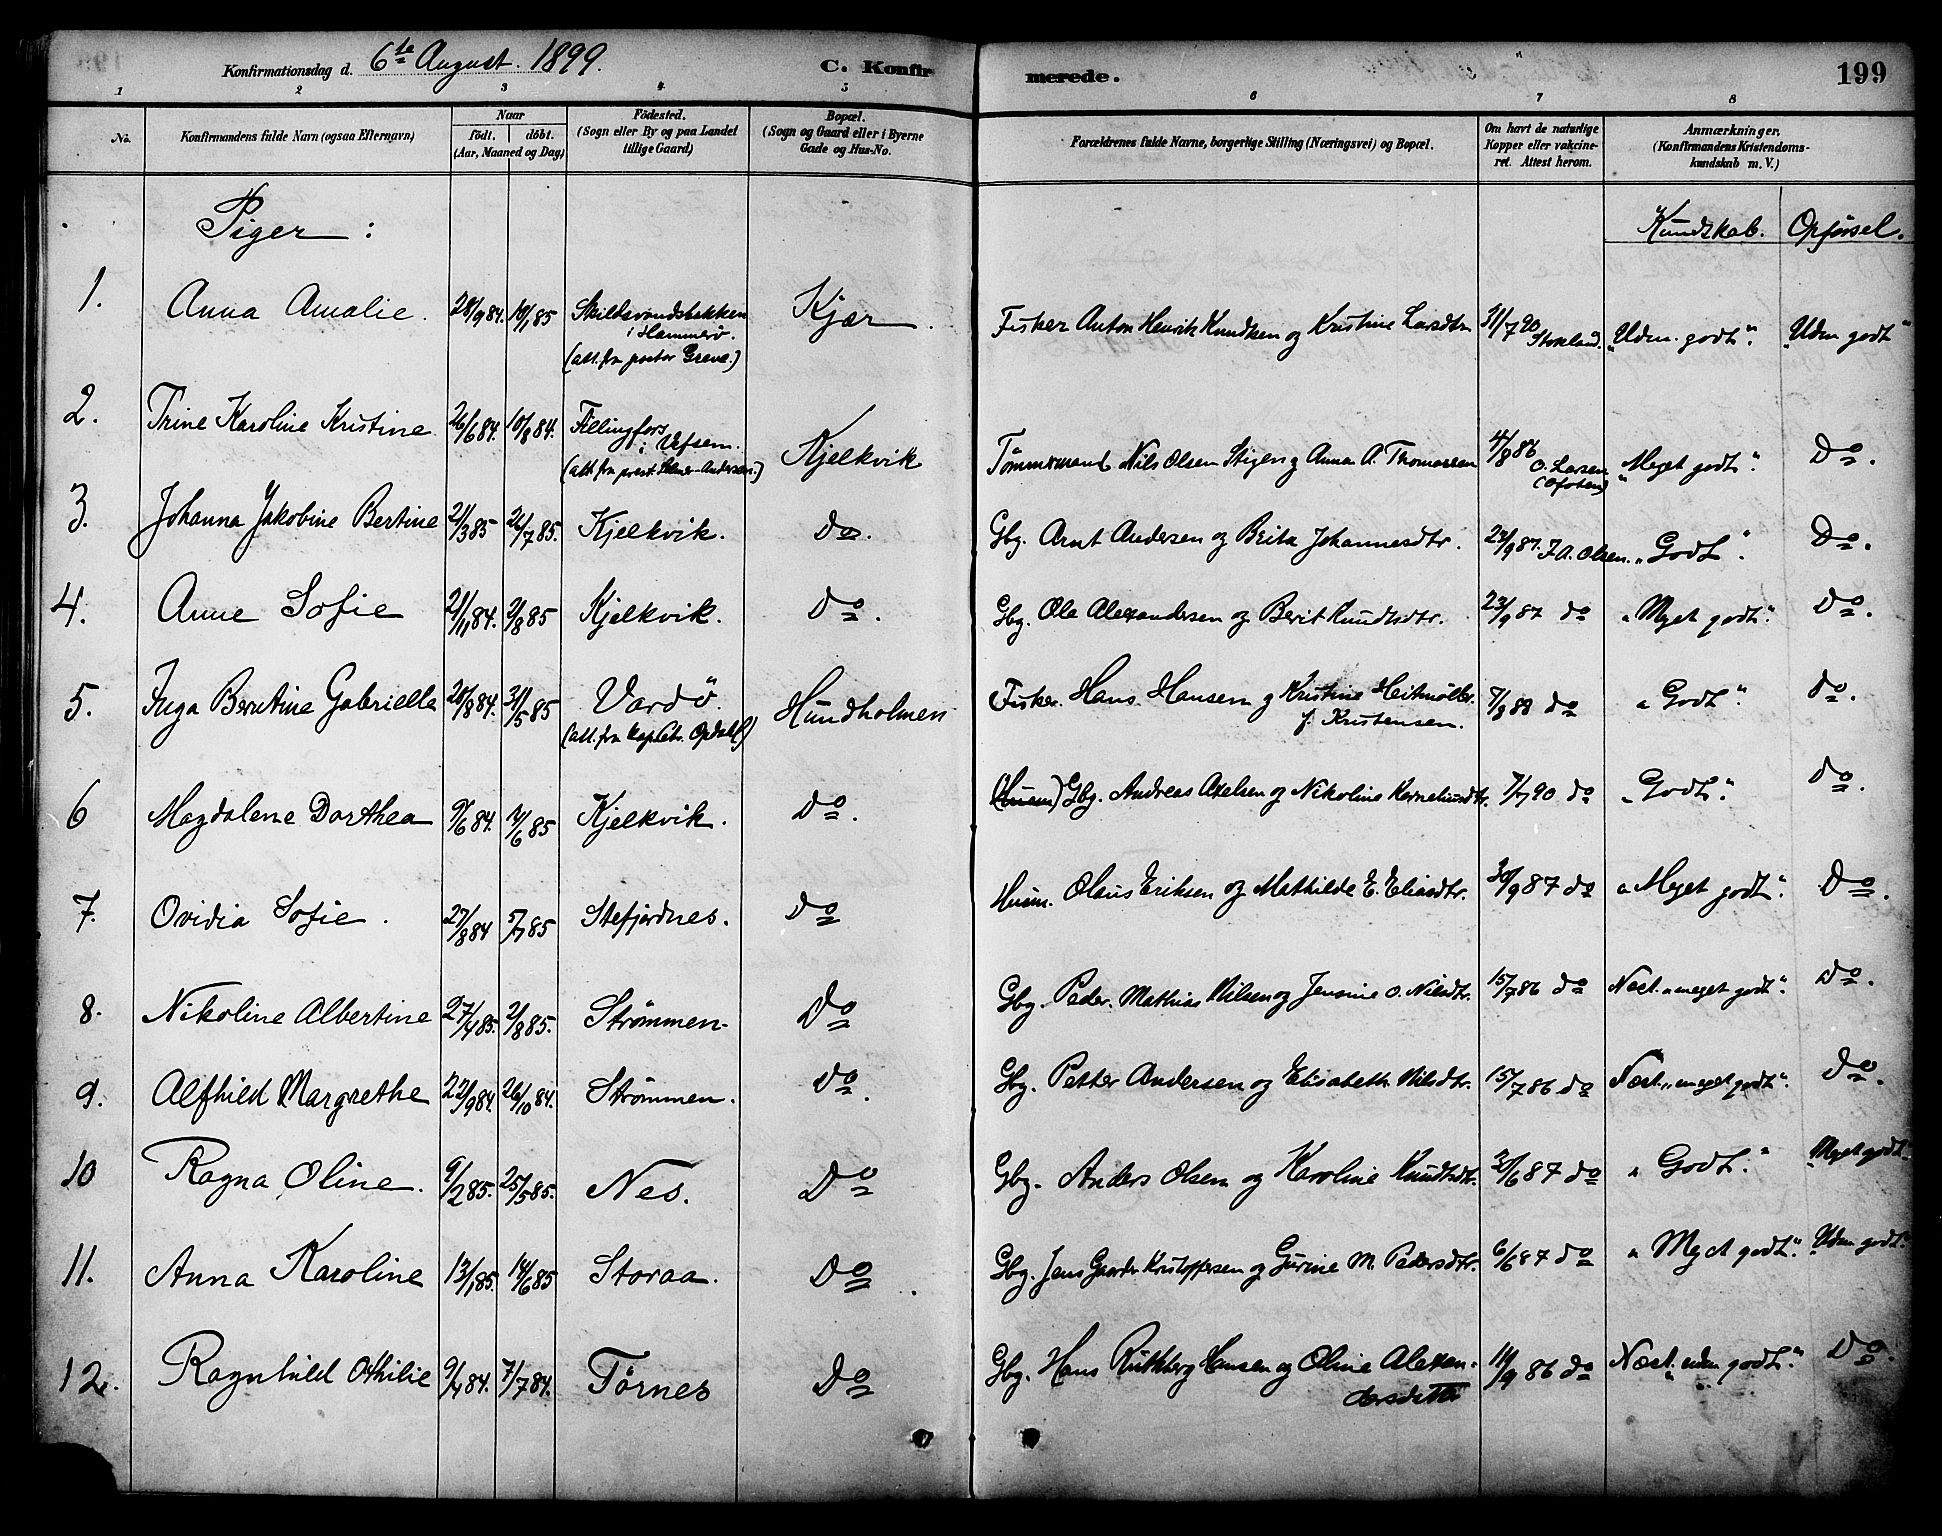 Konfirmationsdag d. 6te August 1899. C. Konfirmerede. 199
1 2 3 4 5 6 7 8
No. Konfirmandens fulde Navn (ogsaa Efternavn) Naar født. døbt. (Aar, Maaned og Dag) Fødested. (Sogn eller By og paa Landet tillige Gaard) Bopæl. (Sogn og Gaard eller i Byerne Gade og Hus-No. Forældrenes fulde Navne, borgerlige Stilling (Næringsvei) og Bopæl. Om havt de naturlige Kopper eller vakcineret. Attest herom. Anmærkninger. (Konfirmandens Kristendomskundskab m. V.)
Piger : Kundskab. Opførsel.
1. Anna Amalie. 28/9 84. 18/1 85 Skildsvandsbakken i Hammerø. (att. fra pastor Greve.) Kjær. Fisker Anton Henrik Knudsen og Kristine Larsdtr 31/7 90 Stokland. "Udm. godt". "Udm. godt"
2. Trine Karoline Kristine 26/6 84. 10/8 84. Fillingfors i Vefsen. Kjelkvik Tømmermand Nils Olsen Stigen og Anna A. Thomassen 4/8 86 O. Larsen (Ofoten) "Meget godt". Do.
3. Johanna Jakobine Bertine 21/3 85 26/7 85. Kjelkvik. Do. Gbg. Arnt Andersen og Brita Johannesdtr. 23/9 87. J.A. Olsen. "Godt". Do.
4. Anne Sofie 21/11 84. 2/8 85 Kjelkvik. Do. Gbg. Ole Alexandersen og Berit Knudsdtr. 23/9 87 do "Meget godt". Do.
5. Inga Berntine Gabrielle 28/8 84. 31/5 85 Vardø. (att. fra Opdahl) Hundholmen Fisker. Hans Hansen og Kristine Heitmøller f. Kristensen. 7/8 88 do "Godt". do.
6 Magdalene Dorthea 9/6 84. 14/6 85 Kjelkvik. Do. (Husm) Gbg. Andreas Axelsen og Nikoline Korneliusdtr. 7/7 90 do "Godt". do.
7. Ovidia Sofie. 27/8 84 5/7 85 Stefjordnes. Do Husm. Olaus Eriksen og Mathilde E. Eliasdtr. 30/9 87 do "Meget godt". Do.
8. Nikoline Albertine 27/4 85. 2/8 85. Strømmen. Do Gbg. Peder Mathias Nilsen og Jensine O. Nilsdtr. 15/7 86 do Næst. "meget godt". do.
9. Alfhild Margrethe 22/9 84. 26/10 84. Strømmen. Do. Gbg. Petter Andersen og Elisabeth Nilsdtr. 15/7 86 do Næst. "meget godt". Do.
10 Ragna Oline. 9/2 85. 25/5 85. Nes. Do Gbg. Anders Olsen og Karoline Knudtsdtr. 30/6 87 do "Godt." "Meget godt".
11. Anna Karoline 13/1 85. 14/6 85 Storaa. Do. Gbg. Jens Gaarder Kristoffersen og Gurine M. Pedersdtr. 6/6 87 do "Meget godt". "Udm. godt".
12. Ragnhild Othilie 9/4 84. 7/7 84. Tørnes Do Gbg. Hans Rutkberg Hansen og Oline Alexandersdatter 14/9 86 do Næst. "udm. godt". Do.